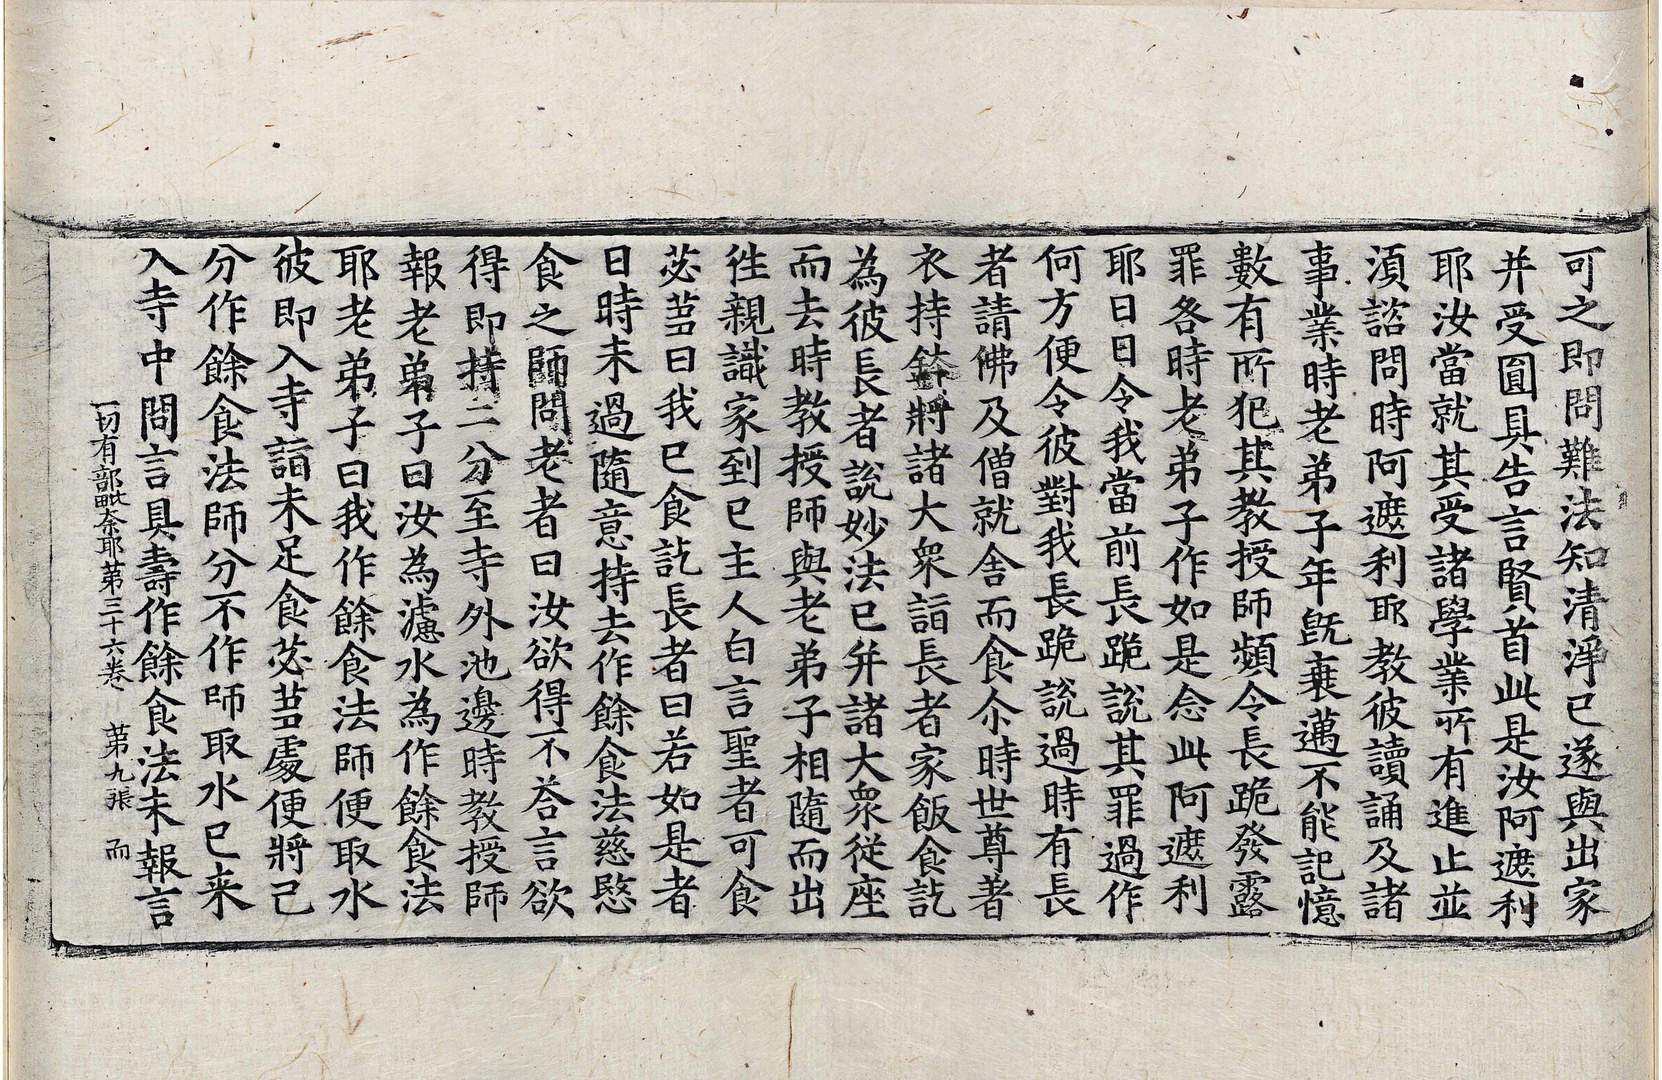 可之即問難法知清淨已遂與出家
并受圓具告言賢首此是汝阿遮利
耶汝當就其受諸學業所有進止並
湏諮問時阿遮利耶教彼讀誦及諸
事業時老弟子年旣衰邁不能記憶
數有所犯其教授師頻令長跪發露
罪各時老弟子作如是念此阿遮利
耶日日令我當前長跪說其罪過作
何方便令彼對我長跪說過時有長
者請佛及僧就舍而食尒時世尊著
衣持鉢將諸大衆詣長者家飯食訖
為彼長者說妙法已幷諸大衆従座
而去時教授師與老弟子相隨而出
徃親識家到已主人白言聖者可食
苾芻曰我已食訖長者曰若如是者
日時未過隨意持去作餘食法慈愍
食之師問老者曰汝欲得不荅言欲
得即持二分至寺外池邊時教授師
報老弟子曰汝為濾水為作餘食法
耶老弟子曰我作餘食法師便取水
彼即入寺詣未足食苾芻處便將己
分作餘食法師分不作師取水已来
入寺中問言具壽作餘食法未報言
一切有部毗奈耶第三十六卷 第九張 而